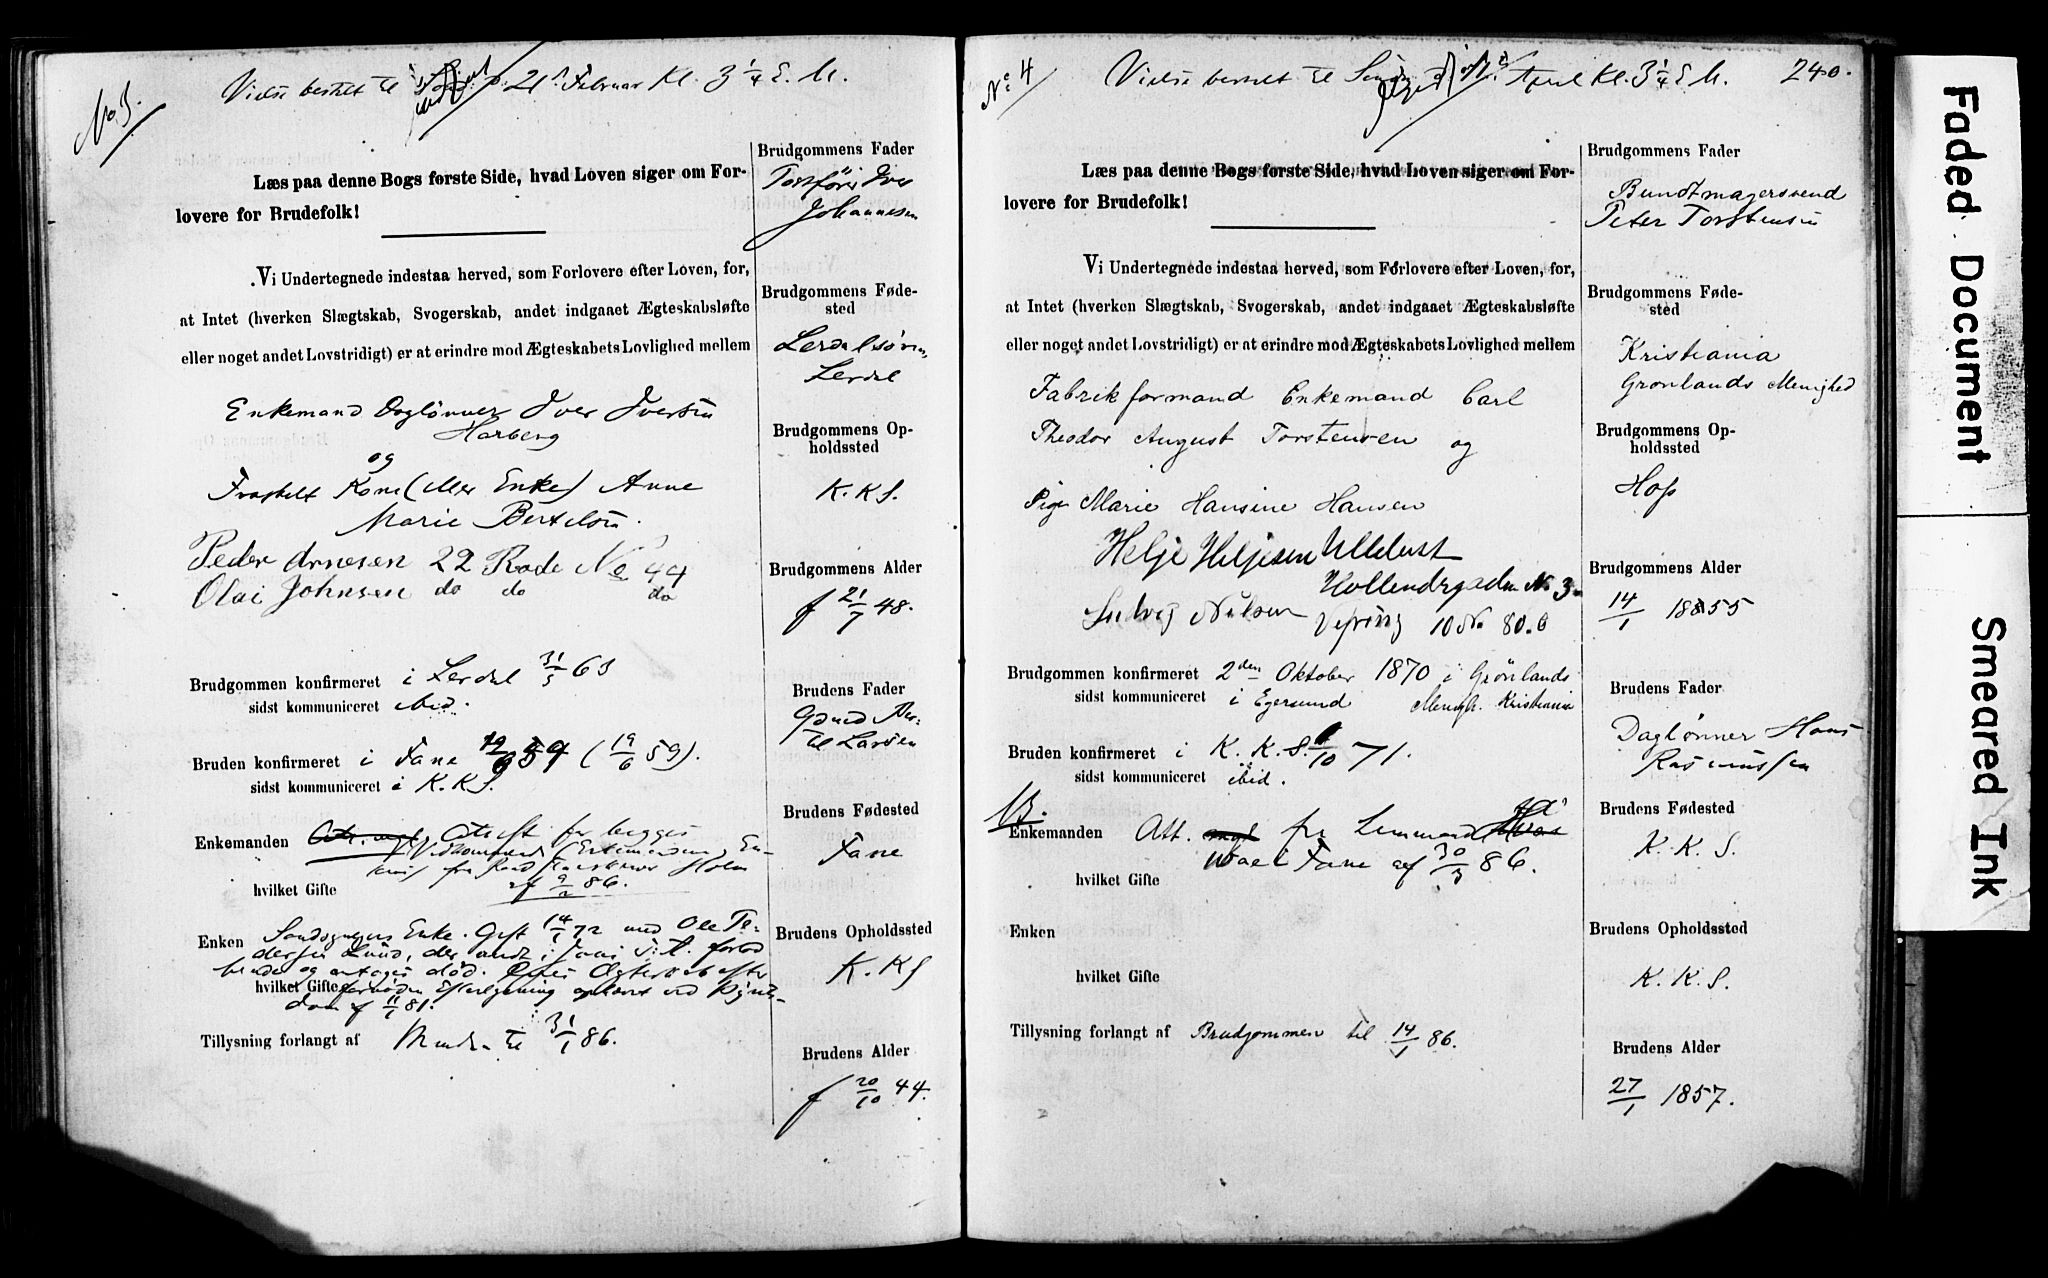 No 3.
Vielse bestelt til 21 Februar Kl. 3 1/4 E. M.
Læs paa denne Bogs første Side, hvad Loven siger om For-
lovere for Brudefolk!
Vi Undertegnede indestaa herved, som Forlovere efter Loven, for,
at Intet (hverken Slægtskab, Svogerskab, andet indgaaet Ægteskabsløfte
eller noget andet Lovstridigt) er at erindre mod Ægteskabets Lovlighed mellem
Enkemand Daglønner Iver Iversen
Harberg
og
Fraskilt Kone (eller Enke) Anne
Marie Bertelsen.
Peder Arnesen 22 Rode No 44
Olai Johnsen do do do
Brudgommen konfirmeret i Lerdal 31/5 63
sidst kommuniceret ibid.
Bruden konfirmeret i Fane (19/6 59).
sidst kommuniceret i K. K S.
Enkemanden Attest for begges
hvilket Gifte af 9/2 86.
Enken Enke. Gift 14/1 72 med Ole Pe-
dersen Lund, der forlod
hende og antages død. Ægteskab efter
hvilket Gifte
dom af 11/1 81.
Tillysning forlangt af Bruden til 31/1 86.
Brudgommens Fader
Iver
Johannesen
Brudgommens Føde-
sted
Lerdalsøren,
Lerdal
Brudgommens Op-
holdssted
K. K S.
Brudgommens Alder
f 21/7 48.
Brudens Fader
Gdmd Ber-
tel Larsen
Brudens Fødested
Fane
Brudens Opholdssted
K. K S
Brudens Alder
f 20/10 44.
No 4
Vielse bestelt til April Kl. 3 1/4 E M.
240.
Læs paa denne Bogs første Side, hvad Loven siger om For-
lovere for Brudefolk!
Vi Undertegnede indestaa herved, som Forlovere efter Loven, for,
at Intet (hverken Slægtskab, Svogerskab, andet indgaaet Ægteskabsløfte
eller noget andet Lovstridigt) er at erindre mod Ægteskabets Lovlighed mellem
Fabrikformand Enkemand Carl
Theodor August Torstensen og
Pige Marie Hansine Hansen
Helje Heljesen Ulletust
Hollendrgaden No 3.
Ludvig Nilsen 10 No 80. b
Brudgommen konfirmeret 2den Oktober 1870 i Grønlands
sidst kommuniceret i Egersund Menigh. Kristiania
Bruden konfirmeret i K. K. S. /10 71.
sidst kommuniceret ibid.
NB.
Enkemanden Att. fra Lensmand
hvilket Gifte Fane af 30/3 86.
Enken
hvilket Gifte
Tillysning forlangt af Brudgommen til 14/ 86.
Brudgommens Fader
Bundtmagersvend
Peter Torstensen
Brudgommens Føde-
sted
Kristiania
Grønlands Menighed
Brudgommens Op-
holdssted
Hop
Brudgommens Alder
14/1 1855
Brudens Fader
Daglønner Hans
Rasmussen
Brudens Fødested
K. K. S.
Brudens Opholdssted
K. K. S.
Brudens Alder
27/1 1857.
Faded Document
Smeared Ink